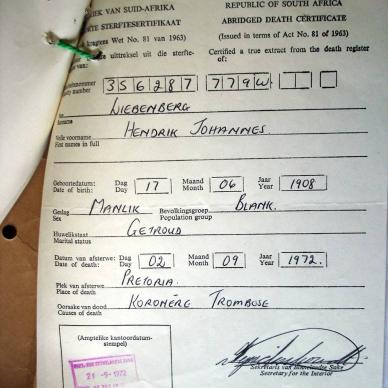 REPUBLIEK VAN SUID-AFRIKA
REPUBLIC OF SOUTH AFRICA
STERFTESERTIFIKAAT
ABRIDGED DEATH CERTIFICATE
Wet No. 81 van 1963)
(Issued in terms of Act No. 81 of 1963)
uittreksel uit die sterfte-
Certified a true extract from the death register
van:
of:
number
356287 779W
LIEBENBERG
Surname
HENDRIK JOHANNES
Volle voorname
First names in full
Geboortedatum:
Date of birth:
Dag
Day
17
Maand
Month
06
Jaar
Year
1908
Geslag
Sex
MANLIK
Bevolkingsgroep
Population group
BLANK.
Huwelikstaat
Marital status
GETROUD
Datum van afsterwe:
Date of death:
Dag
Day
02
Maand
Month
09
Jaar
Year
1972.
Plek van afsterwe
Place of death
PRETORIA.
Oorsake van dood
Causes of death
KORONÊRE TROMBOSE
(Amptelike kantoordatum-
stempel)
1972
Sekretaris van Binnelandse Sake
Secretary for the Interior